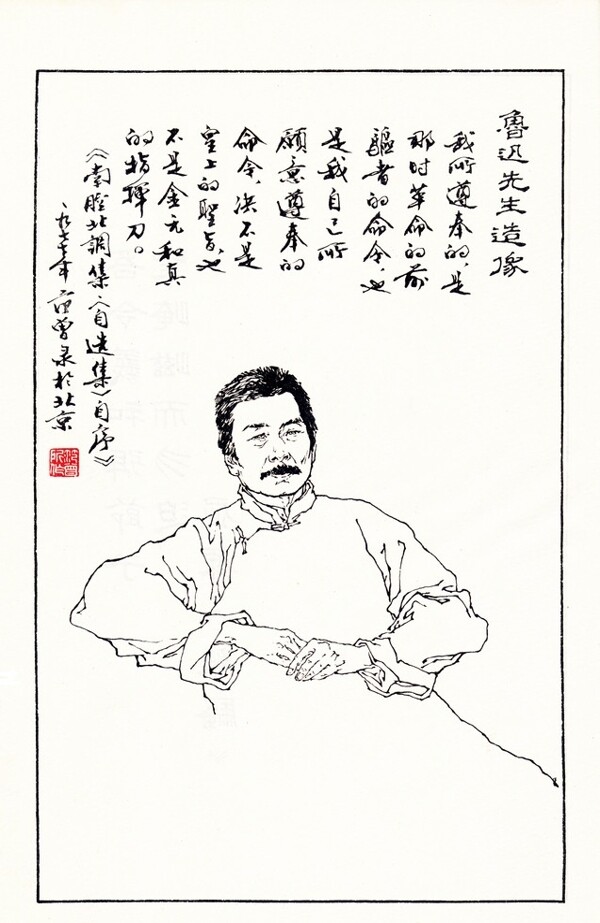 魯迅先生造像
我所遵奉的，是
那时革命的前
驅者的命令，也
是我自己所
願意遵奉的
命令，决不是
皇上的聖旨，也
不是金元和真
的指揮刀。
《南腔北調集》《自選集》自序》
一九七七年范曾录於北京